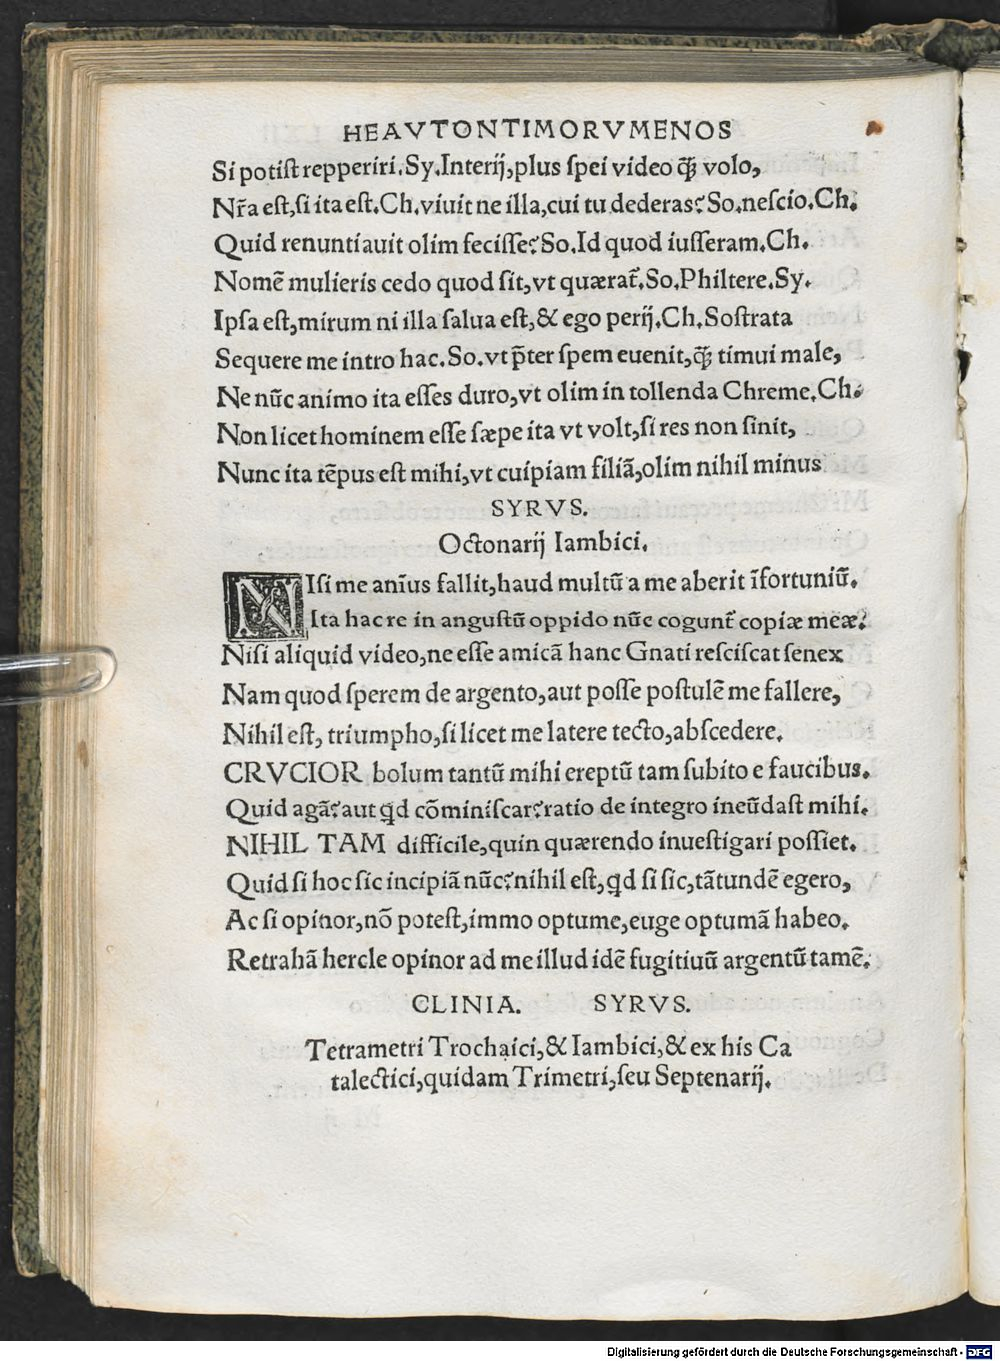 HEAVTONTIMORVMENOS
Si potiſt repperiri.Sy.Interij,plus ſpei video ꝗ̃ volo,
Nr̃a eſt,ſi ita eſt.Ch.viuit ne illa,cui tu dederas?So.neſcio.Ch.
Quid renuntiauit olim feciſſe?So.Id quod iuſſeram.Ch.
Nomẽ mulieris cedo quod ſit,vt quærat̃.So.Philtere.Sy.
Ipſa eſt,mirum ni illa ſalua eſt,& ego perij.Ch.Soſtrata
Sequere me intro hac.So.vt p̃ter ſpem euenit,ꝗ̃ timui male,
Ne nũc animo ita eſſes duro,vt olim in tollenda Chreme.Ch.
Non licet hominem eſſe ſæpe ita vt volt,ſi res non ſinit,
Nunc ita tẽpus eſt mihi,vt cuipiam filiã,olim nihil minus
SYRVS.
Octonarij Iambici.
NIſi me anĩus fallit,haud multũ a me aberit ĩfortuniũ.
Ita hac re in anguſtũ oppido nũc cogunt̃ copiæ meæ?
Niſi aliquid video,ne eſſe amicã hanc Gnati reſciſcat ſenex
Nam quod ſperem de argento,aut poſſe poſtulẽ me fallere,
Nihil eſt, triumpho,ſi licet me latere tecto,abſcedere.
CRVCIOR bolum tantũ mihi ereptũ tam ſubito e faucibus.
Quid agã?aut ꝗd cõminiſcar?ratio de integro ineũdaſt mihi.
NIHIL TAM difficile,quin quærendo inueſtigari poſſiet.
Quid ſi hoc ſic incipiã nũc?nihil eſt,ꝗd ſi ſic,tãtundẽ egero,
Ac ſi opinor,nõ poteſt,immo optume,euge optumã habeo.
Retrahã hercle opinor ad me illud idẽ fugitiuũ argentũ tamẽ.
CLINIA. SYRVS.
Tetrametri Trochaici,& Iambici,& ex his Ca
talectici,quidam Trimetri,ſeu Septenarij.
Digitalisierung gefördert durch die Deutsche Forschungsgemeinschaft - DFG